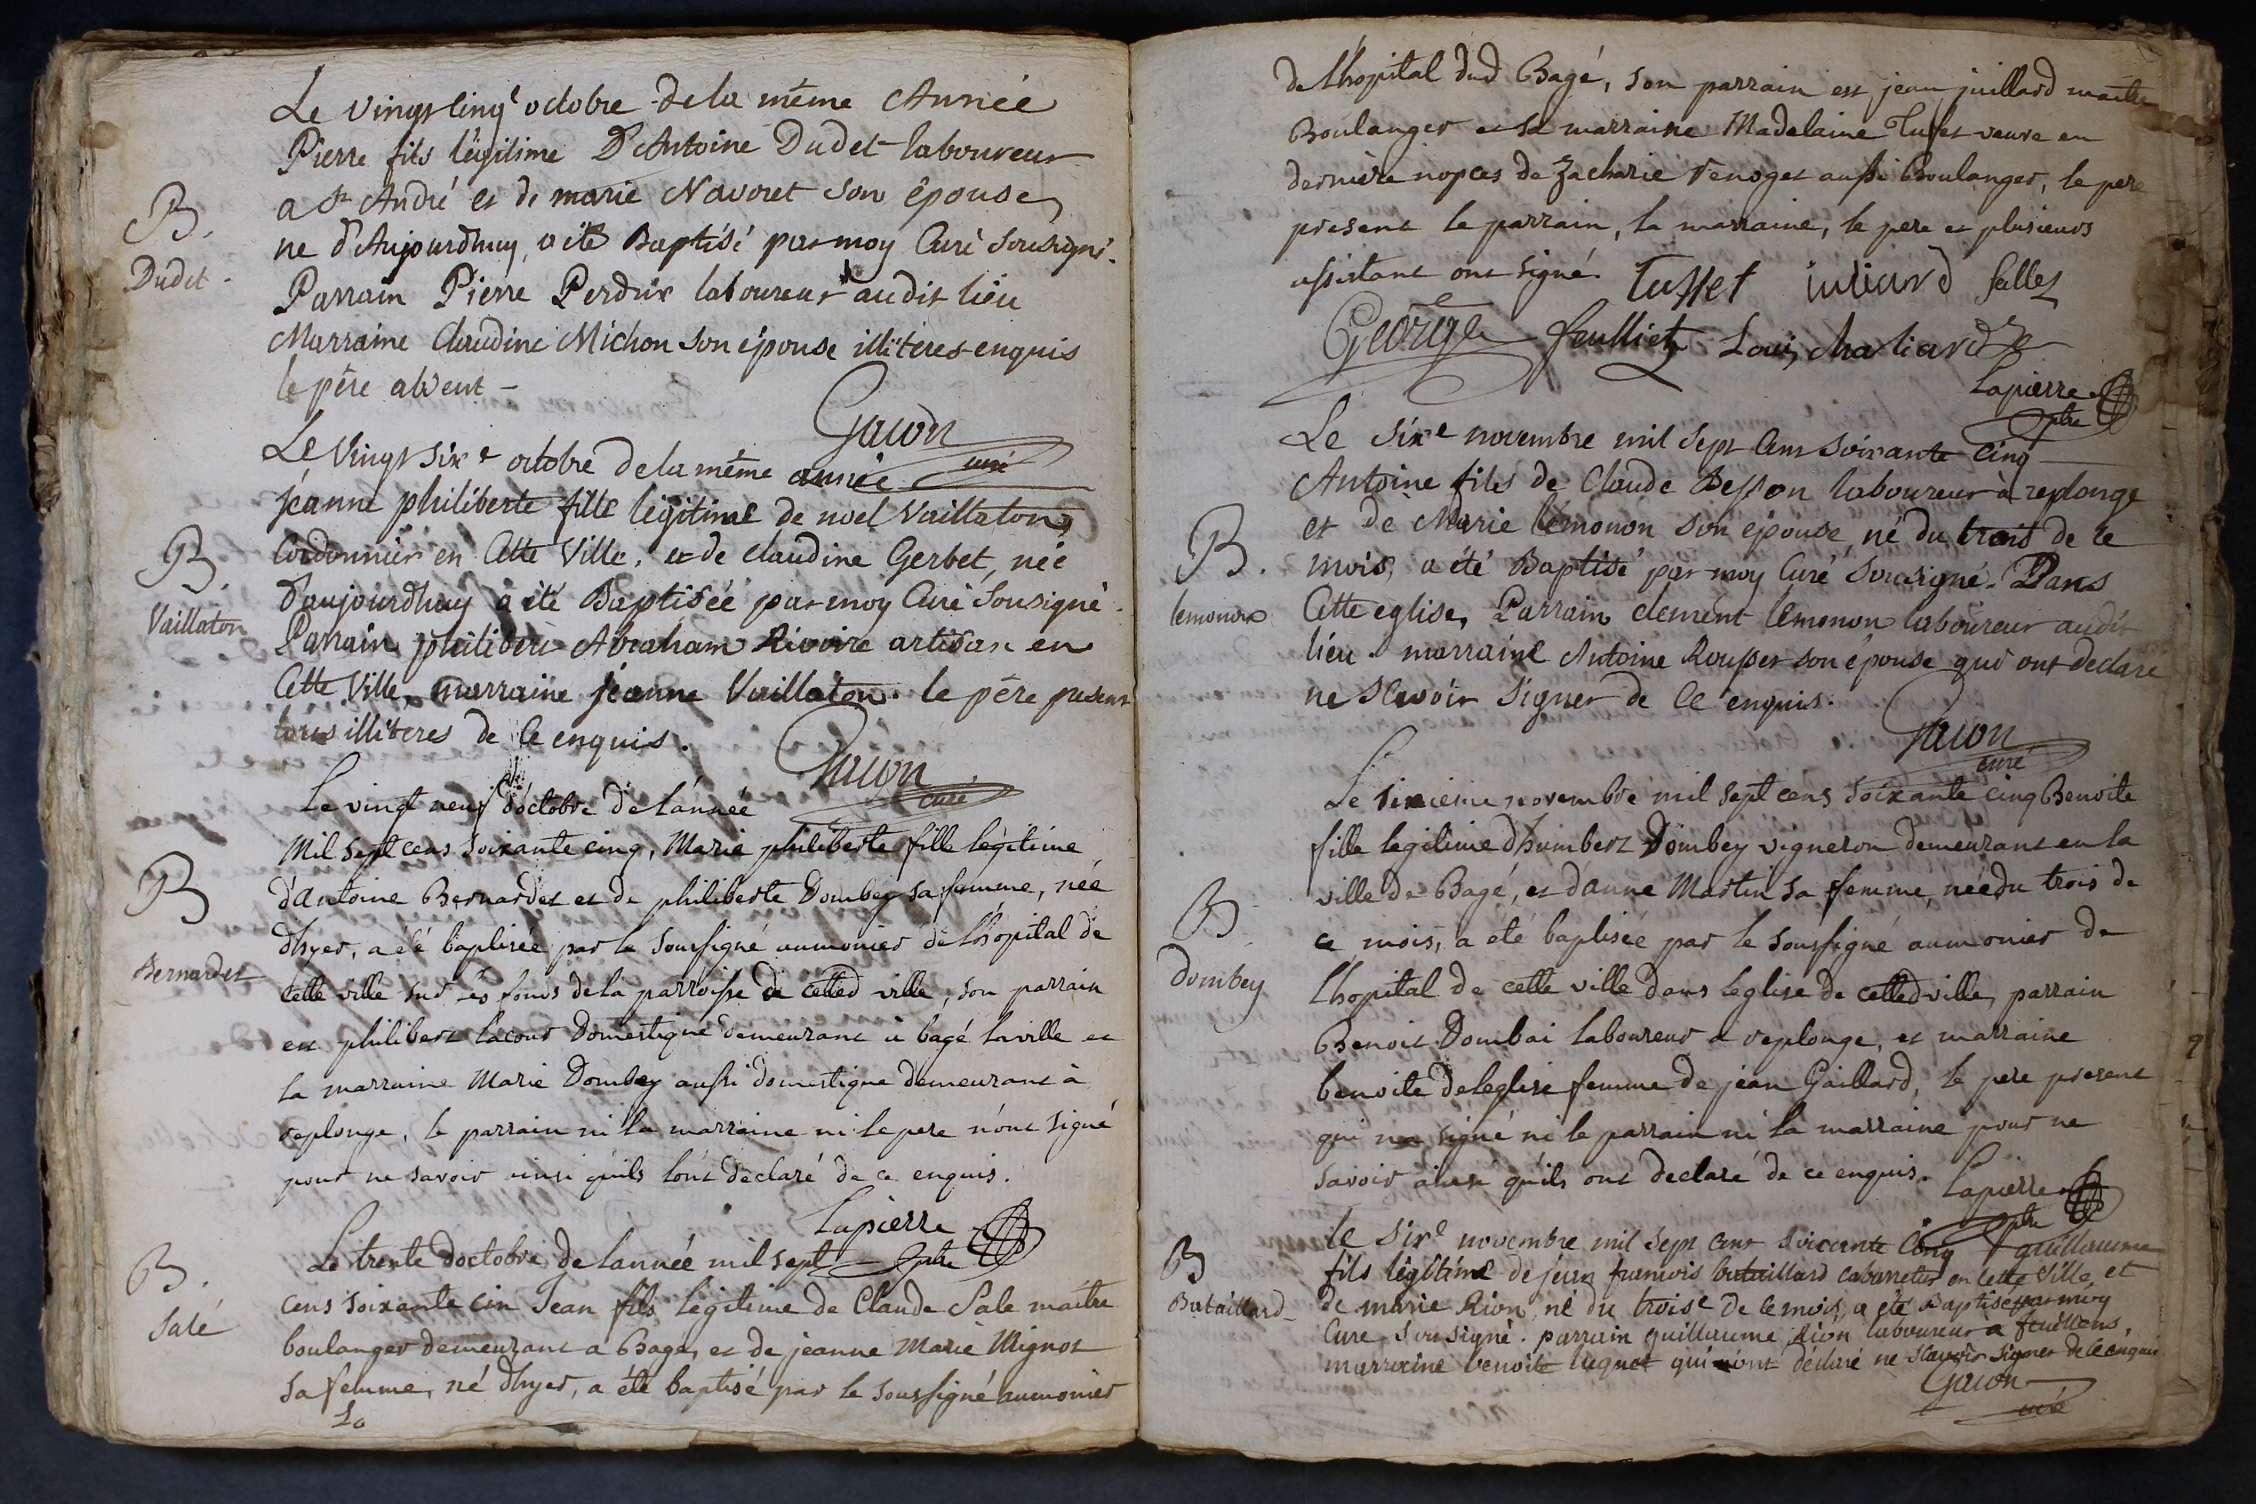 Le vingt cinq.e octobre de la même Année
Pierre fils légitime D'Antoine Dudet laboureur
a St André et de marie Navoret son épouse,
B.
ne d'Aujourdhuy, a été Baptisé par moy Curé sousigné.
Dudet.
Parrain Pierre Perdrix laboureur audit lieu
Marraine Claudine Michon son épouse illiteres enquis
le père absent -
Gacon
curé
Le Vingt six.e octobre de la même année
jéanne philiberte fille légitime de noel Vaillaton,
B.
Cordonnier en Cette Ville. et de claudine Gerbet, née
d'aujourdhuy a été Baptisée par moy Curé Sousigné.
Vaillaton
Parrain philibert Abraham Rivoire artisan en
Cette Ville, marraine jeanne Vaillaton. le père present
tous illiteres de Ce enquis.
Gacon
curé
Le vingt neuf d'octobre de l'année
Mil sept cens soixante cinq, Marie philiberte fille légitime
B
d'antoine Bernardet et de philiberte Dombey sa femme, née
d'hyer, a été baptisée par le soussigné aumonier de l'hopital de
Bernardet
cette ville sur les fonts de la parroisse de cetted ville, son parrain
est philibert Lacour Domestique demeurant à bagé la ville et
la marraine Marie Dombey aussi domestique demeurant à
replonge, le parrain ni la marraine ni le pere n'ont signé
pour ne savoir ainsi qu'ils l'ont declaré de ce enquis.
Lapierre
ptre
Le trente d'octobre de lannée mil sept
B.
cens soixante cin Jean fils légitime de Claude Sale maitre
Salé
boulanger demeurant a Bage, et de jeanne Marie Mignot
sa femme, né d'hyer, a été baptisé par le soussigné aumonier
de l'hopital dud Bagé, son parrain est jean juillard maitre
Boulanger et sa marraine Madelaine Tufet veuve en
dernière nopces de Zacharie renoget aussi Boulanger, le pere
present le parrain, la marraine, le pere et plusieurs
assistant ont signé. Tusset iuliard Salles
George feulliet Loui charliard
Lapierre
ptre
Le six.e novembre mil sept Cens soixante Cinq
Antoine fils de Claude Besson laboureur à replonge
et de Marie lémonon son épouse, né du trois de ce
B.
mois, a été Baptisé par moy Curé sousigné. Dans
lemonon
Cette eglise, Parrain clement lémonon laboureur audit
lieu. marraine Antoine Rousset son épouse qui ont declaré
ne scavoir signer de Ce enquis.
Gacon
curé
Le sixieme novembre mil sept cens soixante cinq Benoite
fille legitime d'humbert Dombey vigneron demeurant en la
ville de Bagé, et d'anne Martin sa femme, née du trois de
B
ce mois, a été baptisée par le soussigné aumonier de
Dombey
l'hopital de cette ville dans leglise de cetted ville, parrain
Benoit Dombai laboureur a replonge, et marraine
benoite Deleglise femme de jean Gaillard, le pere present
qui na signé ni le parrain ni la marraine pour ne
savoir ainsi qu'ils ont declaré de ce enquis.
Lapierre
ptre
le six.e novembre mil sept cens soixante Cinq guillaume
B
fils légitime de jean francois bataillard cabaretier en Cette Ville, et
Bataillard
de marie Rion, né du trois.e de ce mois, a été Baptisé par moy
Curé sousigné. parrain guillaume Rion laboureur a feuillens,
marraine benoite luquet qui n'ont déclaré ne scavoir signer de Ce enquis
Gacon
curé